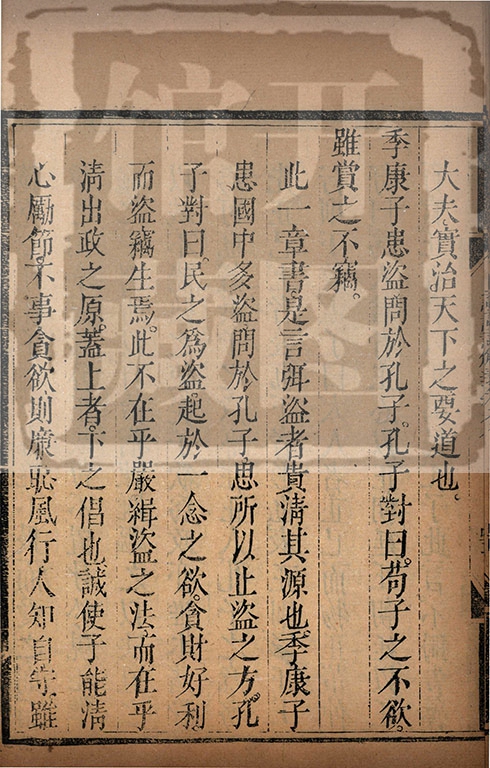 大夫實治天下之要道也。
季康子患盜問於孔子。孔子對曰。苟子之不欲。
雖賞之不竊。
此一章書是言弭盜者貴清其源也。季康子
患國中多盜問於孔子思所以止盜之方。孔
子對曰。民之為盜起於一念之欲貪財好利
而盜竊生焉。此不在乎嚴緝盜之法而在乎
清出政之原。蓋上者。下之倡也誠使子能清
心勵節。不事貪欲則廉恥風行人知自守。雖